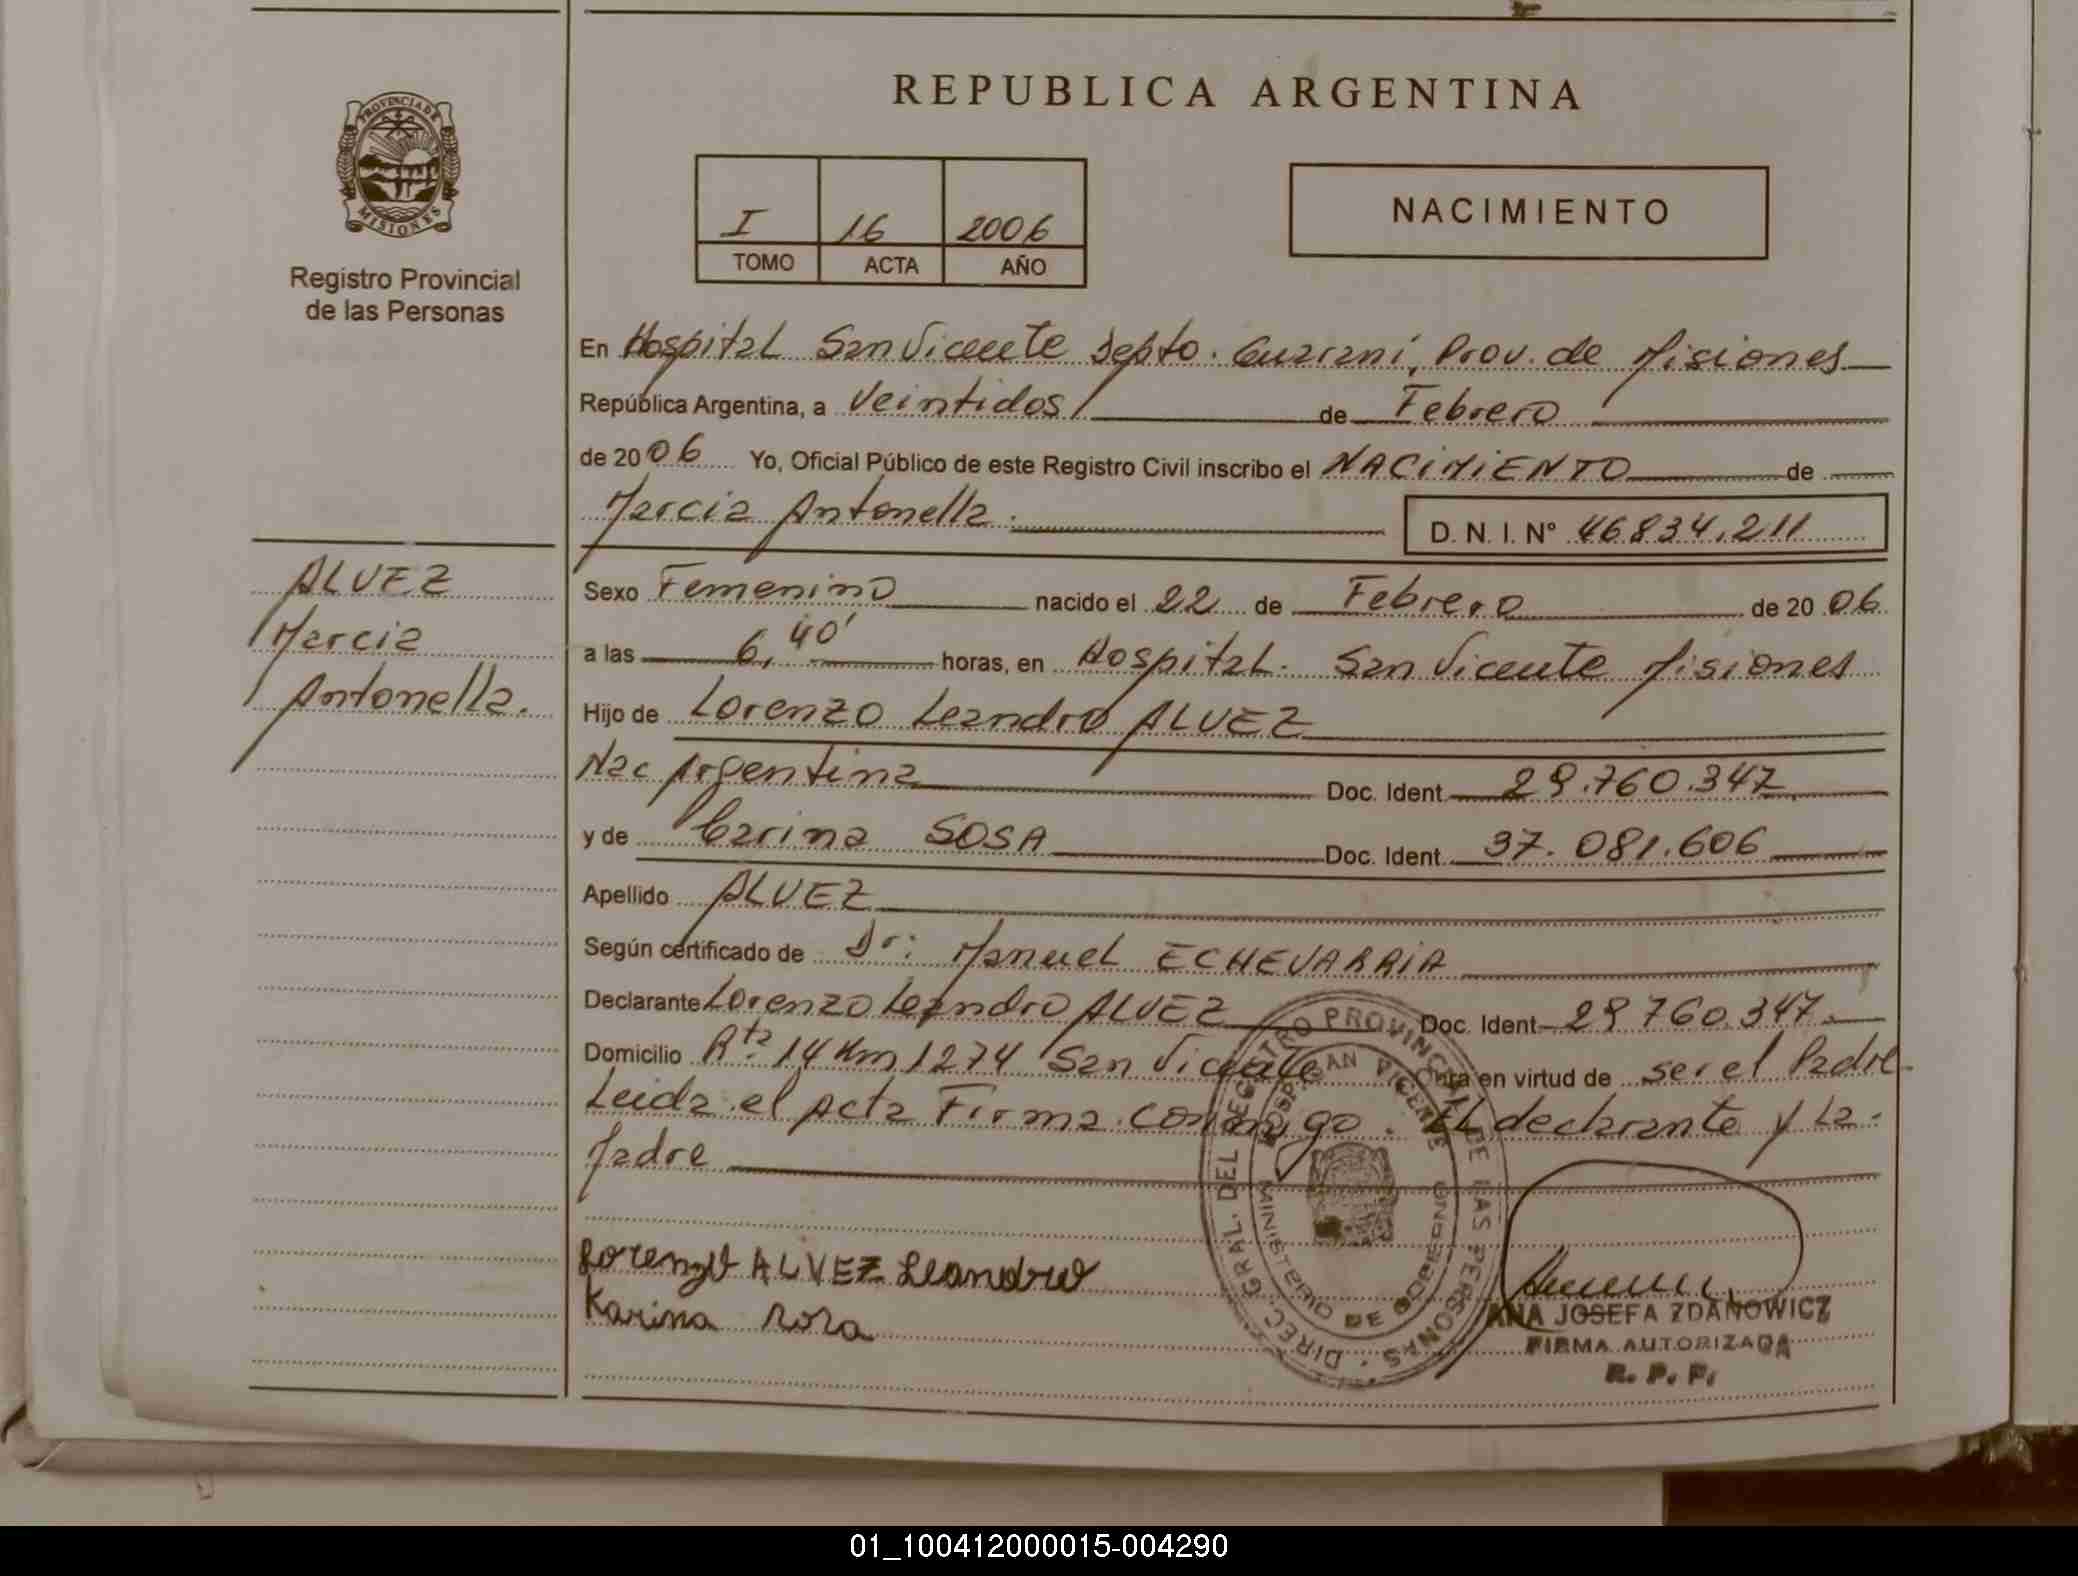 REPUBLICA ARGENTINA
PROVINCIA DE MISIONES
Registro Provincial
de las Personas
I 16 2006
TOMO ACTA AÑO
NACIMIENTO
En Hospital San Vicente Depto. Guaraní, Prov. de Misiones
República Argentina, a Veintidos de Febrero
de 2006 Yo, Oficial Público de este Registro Civil inscribo el NACIMIENTO de
Marcia Antonella. D. N. I. N° 46834.211
ALVEZ
Marcia
Antonella.
Sexo Femenino nacido el 22 de Febrero de 2006
a las 6,40' horas, en Hospital. San Vicente Misiones
Hijo de Lorenzo Leandro ALVEZ
Nac Argentina Doc. Ident. 29.760.347
y de Carina SOSA Doc. Ident. 37.081.606
Apellido ALVEZ
Según certificado de Dr: Manuel ECHEVARRIA
Declarante Lorenzo Leandro ALVEZ Doc. Ident. 29760.347
Domicilio Rta 14 Km 1274 San Vicente Obra en virtud de ser el Padre
Leida el Acta Firma conmigo. EL declarante y La
Madre
Lorenzo ALVEZ Leandro
Karina Sosa
DIREC. GRAL. DEL REGISTRO PROVINCIAL DE LAS PERSONAS
HOSP. SAN VICENTE
MINISTERIO DE GOBIERNO
ANA JOSEFA ZDANOWICZ
FIRMA AUTORIZADA
R. P. P.
01_100412000015-004290